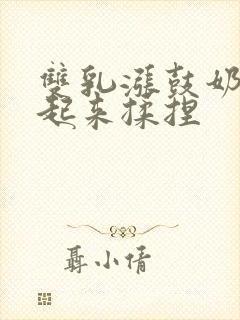 雙乳漲鼓奶
起来揉捏
聶小倩